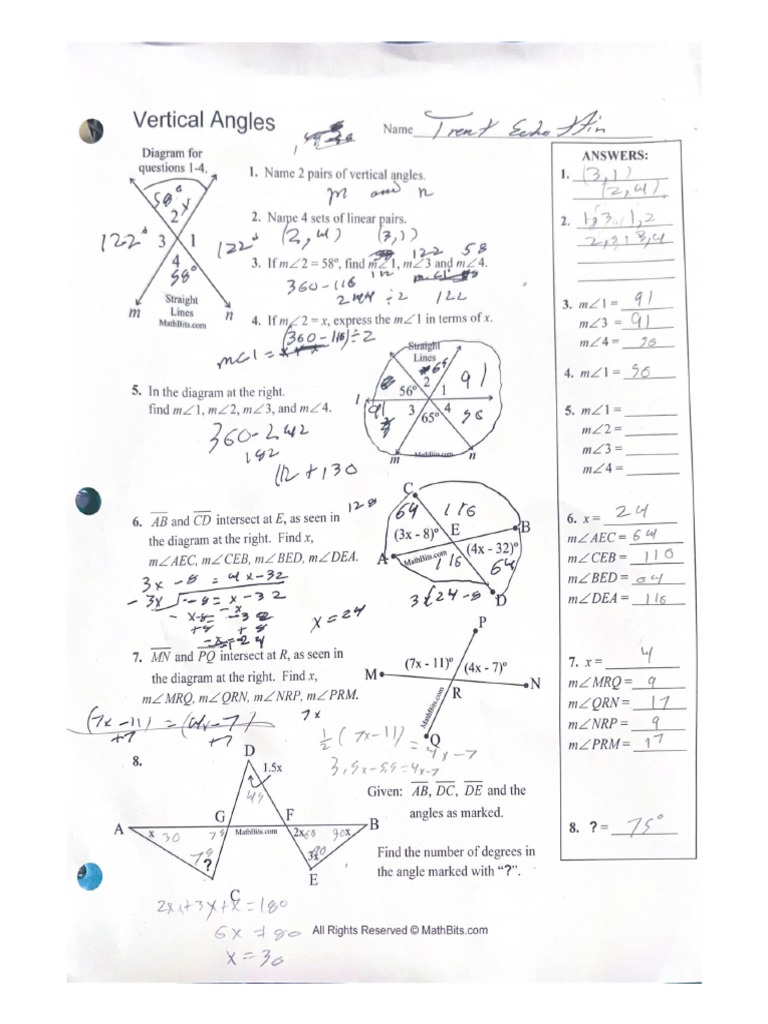 Vertical Angles
Name Trent
Diagram for
questions 1-4.
58°
2 x
122° 3 1 122°
4
58°
m n
Straight
Lines
MathBits.com
1. Name 2 pairs of vertical angles.
m and n
2. Name 4 sets of linear pairs.
(2,4) (3,1)
3. If m∠2 = 58°, find m∠1, m∠3 and m∠4.
122 58
360-116
244 ÷2 122
4. If m∠2 = x, express the m∠1 in terms of x.
(360-116)÷2
m<1 =
5. In the diagram at the right.
find m∠1, m∠2, m∠3, and m∠4.
360-242
182
112+130
Straight
Lines
56° 2 1 91
91 3 65° 4
m MathBits.com n
6. AB and CD intersect at E, as seen in
the diagram at the right. Find x,
m∠AEC, m∠CEB, m∠BED, m∠DEA.
128
C
64 116
(3x - 8)° E B
A MathBits.com (4x - 32)°
116 64
D
3x -8 = 4x-32
-3x -8= x-32
x=24
3(24-8
7. MN and PQ intersect at R, as seen in
the diagram at the right. Find x,
m∠MRQ, m∠QRN, m∠NRP, m∠PRM.
P
(7x - 11)° (4x - 7)°
M N
R
MathBits.com
Q
(7x-11) = (4x-7)
+7 +7
7x
1/2 (7x-11) = 4x-7
3.5x-5.5=4x-7
8.
D
1.5x
45
G F
A x 30 75 MathBits.com 2x 90x B
75
?
E
C
Given: AB, DC, DE and the
angles as marked.
Find the number of degrees in
the angle marked with “?”.
2x+3x+x=180
6x=180
x=30
All Rights Reserved © MathBits.com
ANSWERS:
1. (3,1)
(2,4)
2. 1,3 1,2
2,3 3,4
3. m∠1 = 91
m∠3 = 91
m∠4 = 56
4. m∠1 = 56
5. m∠1 =
m∠2 =
m∠3 =
m∠4 =
6. x = 24
m∠AEC = 64
m∠CEB = 110
m∠BED = 64
m∠DEA = 116
7. x = 4
m∠MRQ = 9
m∠QRN = 17
m∠NRP = 9
m∠PRM = 17
8. ? = 75°